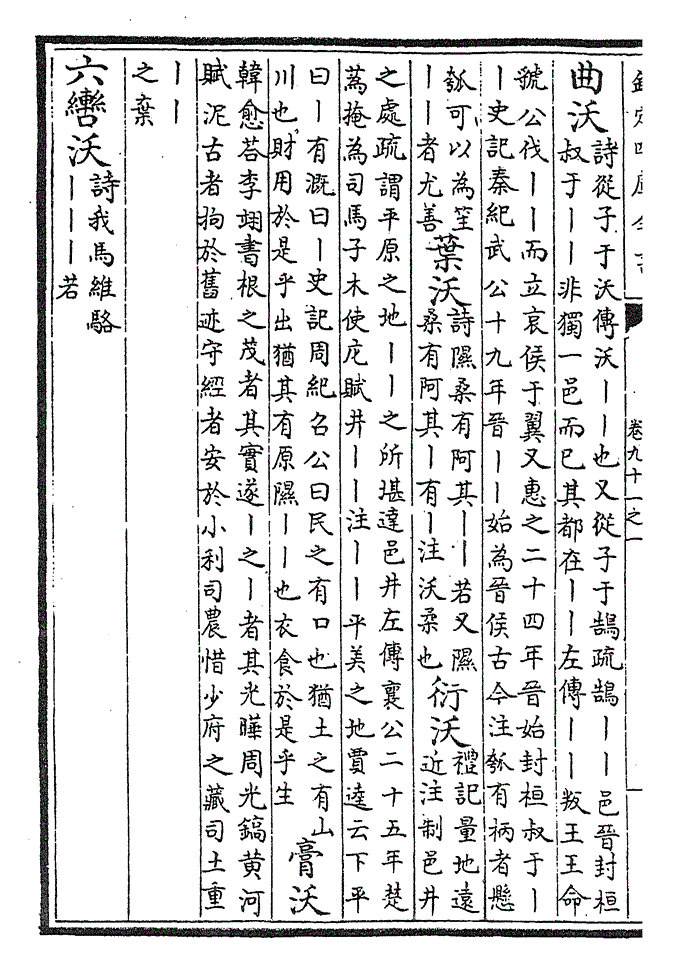 欽定四庫全書 卷九十一之一
曲沃 詩從子于沃傳沃丨丨也又從子于鵠疏鵠丨丨邑晉封桓
叔于丨丨非獨一邑而已其都在丨丨左傳丨丨叛王王命
虢公伐丨丨而立哀侯于翼又惠之二十四年晉始封桓叔于丨
丨史記秦紀武公十九年晉丨丨始為晉侯古今注瓠有柄者懸
瓠可以為笙
丨丨者尤善
葉沃 詩隰桑有阿其丨丨若又隰
桑有阿其丨有丨注沃柔也
衍沃 禮記量地遠
近注制邑井
之處疏謂平原之地丨丨之所堪達邑井左傳襄公二十五年楚
蒍掩為司馬子木使庀賦井丨丨注丨丨平美之地賈逵云下平
曰丨有溉曰丨史記周紀召公曰民之有口也猶土之有山
川也財用於是乎出猶其有原隰丨丨也衣食於是乎生
膏沃
韓愈答李翊書根之茂者其實遂丨之丨者其光曄周光鎬黄河
賦泥古者拘於舊迹守經者安於小利司農惜少府之藏司土重
丨丨
之棄
六轡沃 詩我馬維駱
丨丨丨若